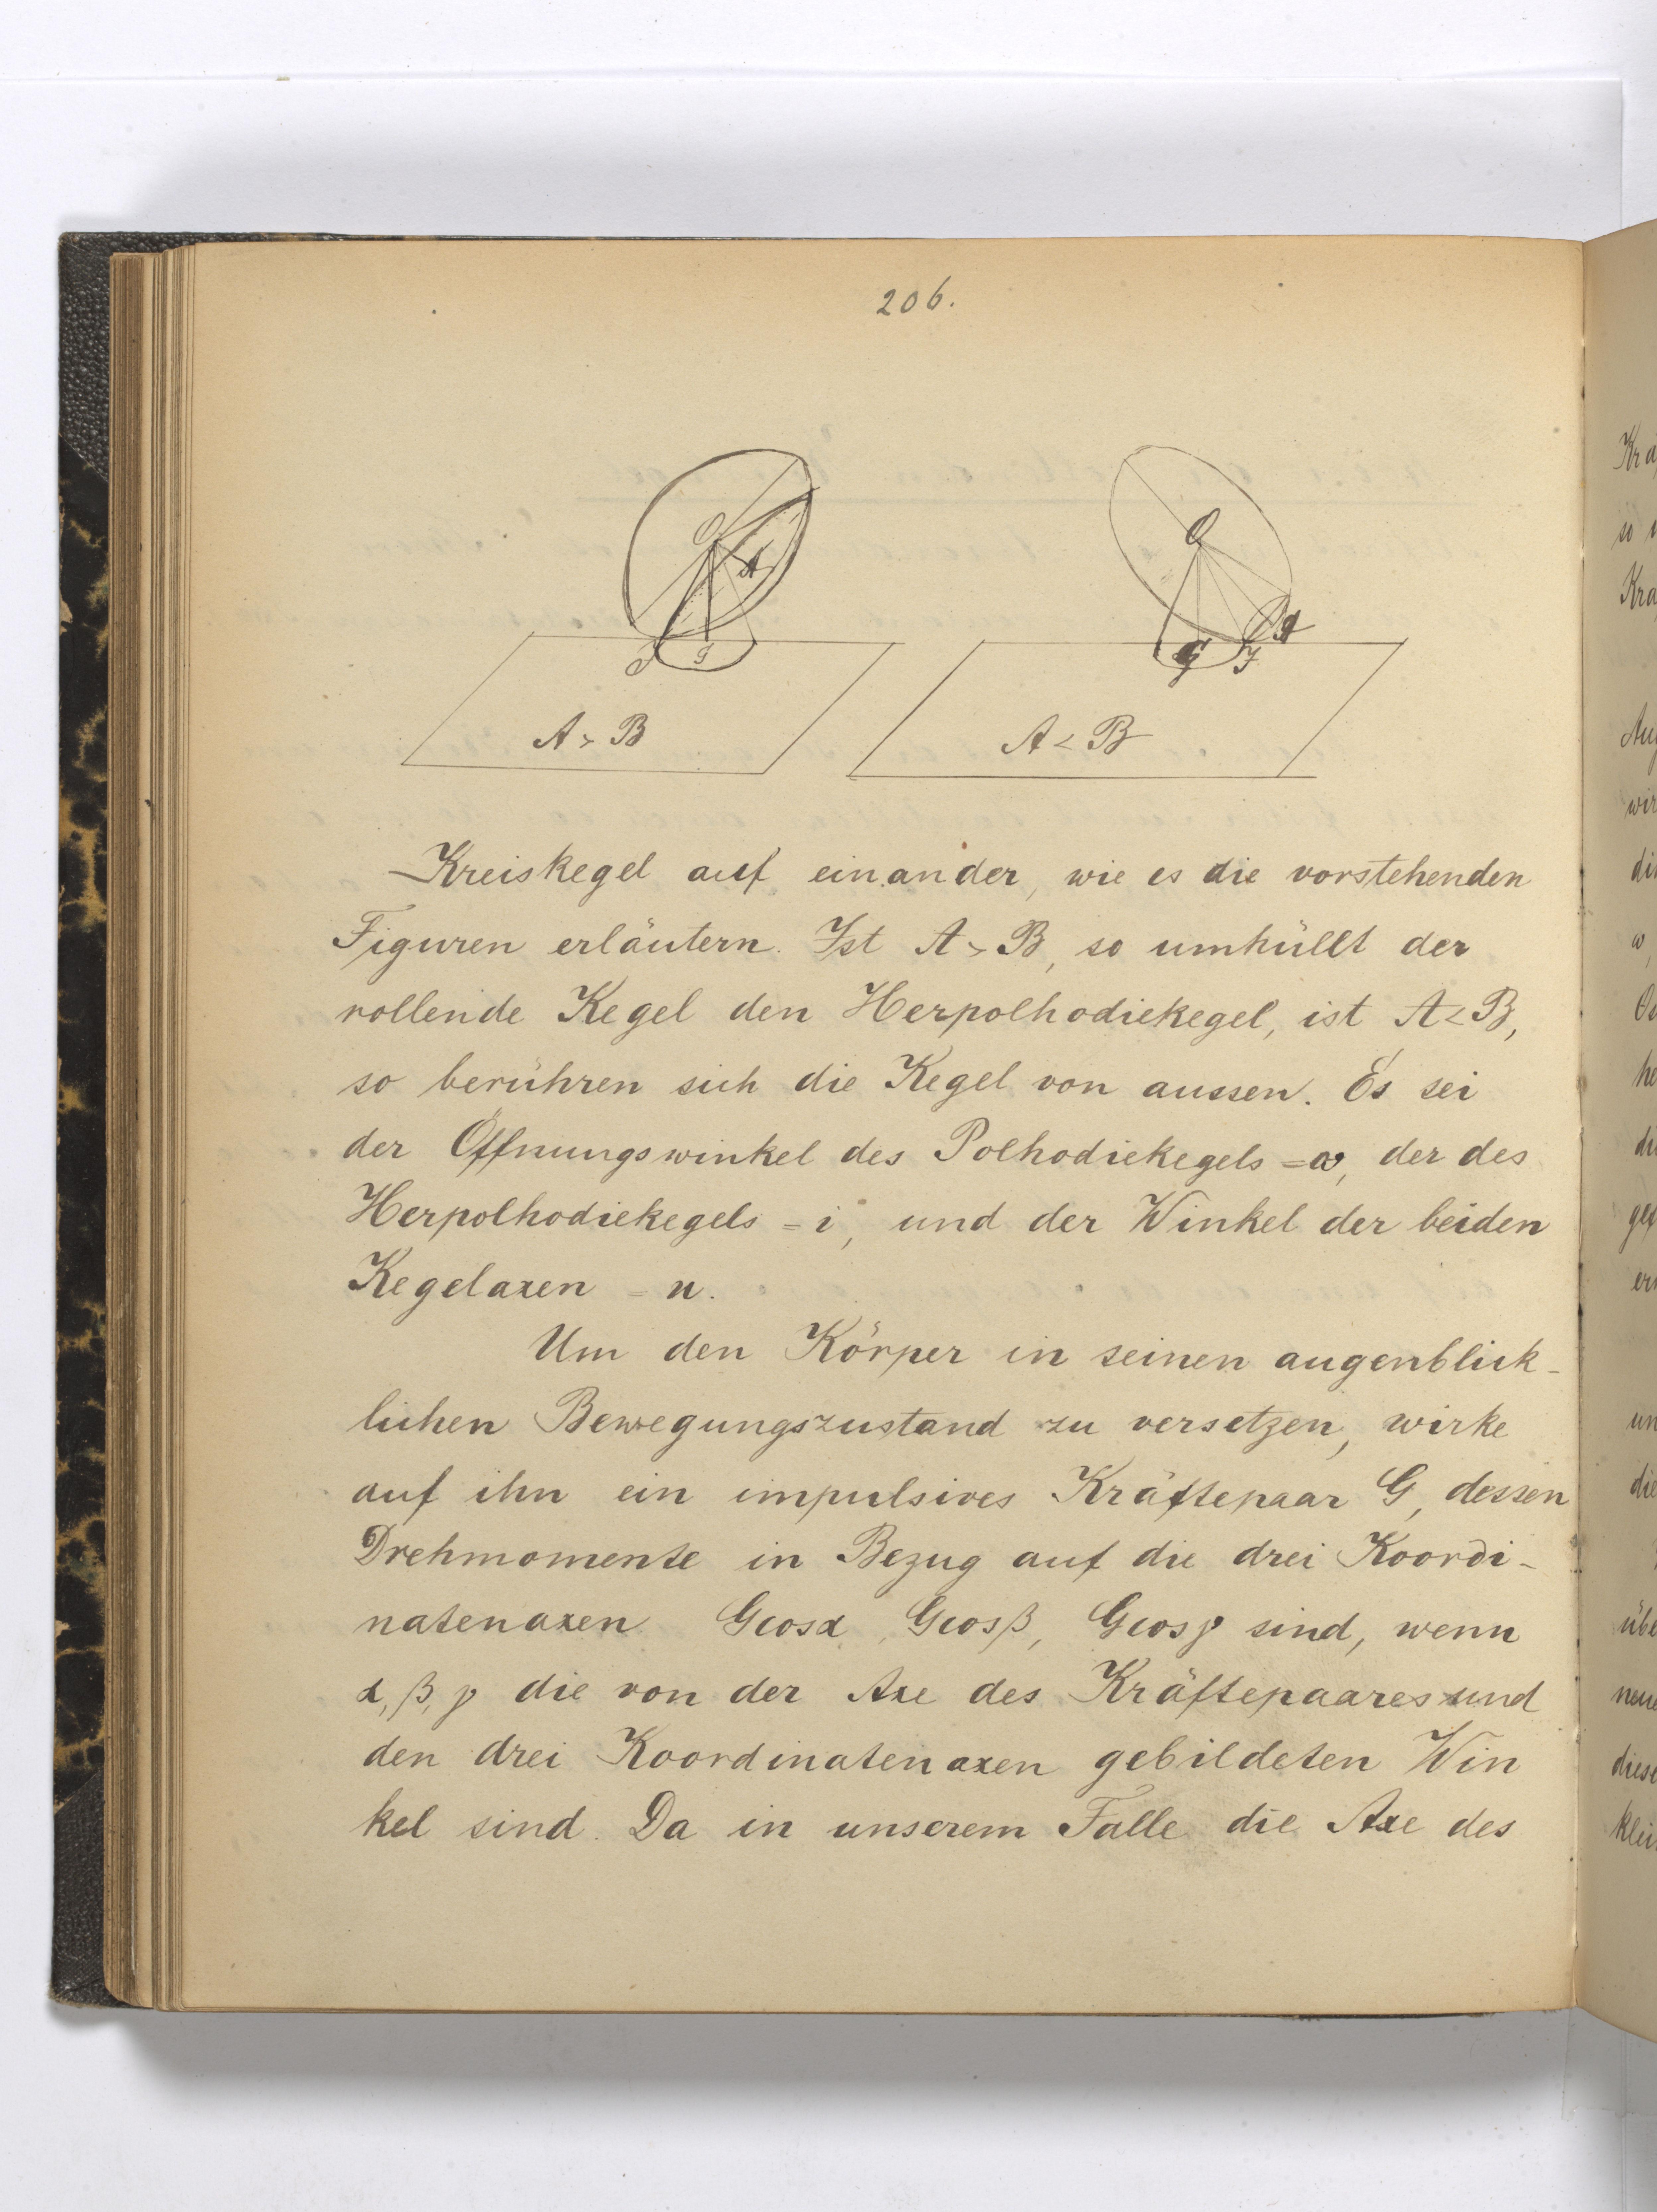 206.
O
A
J
G
A > B
O
A
G
J
A < B
Kreiskegel auf einander, wie es die vorstehenden
Figuren erläutern. Ist A > B, so umhüllt der
rollende Kegel den Herpolhodiekegel, ist A < B,
so berühren sich die Kegel von aussen. Es sei
der Öffnungswinkel des Polhodiekegels = α, der des
Herpolhodiekegels = i, und der Winkel der beiden
Kegelaxen = n.
Um den Körper in seinen augenblick-
lichen Bewegungszustand zu versetzen, wirke
auf ihn ein impulsives Kräftepaar G, dessen
Drehmomente in Bezug auf die drei Koordi-
natenaxen Gcosα, Gcosβ, Gcosγ sind, wenn
α, β, γ die von der Axe des Kräftepaares und
den drei Koordinatenaxen gebildeten Win
kel sind. Da in unserem Falle die Axe des